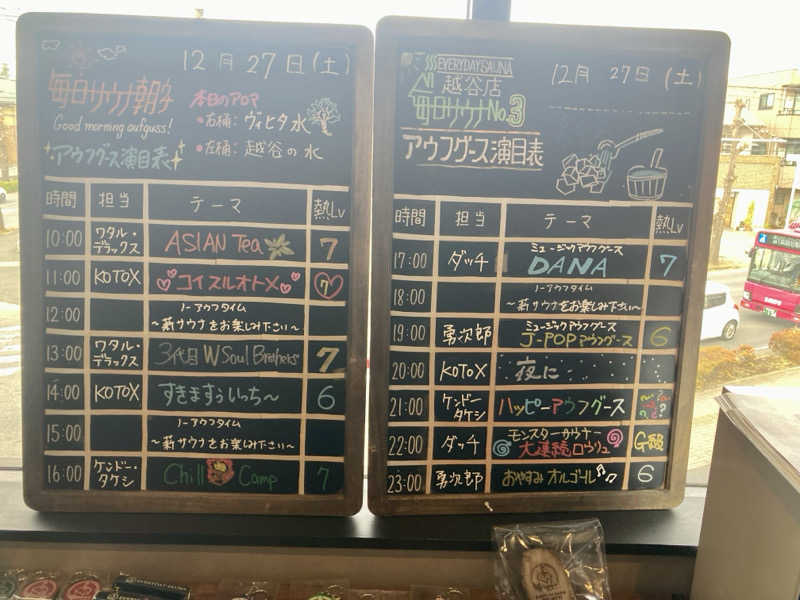 12月27日(土)
毎日サウナ朝子
Good morning aufguss!
アウフグース演目表
本日のアロマ
・右桶: ヴィヒタ水
・左桶: 越谷の水
時間 担当 テーマ 熱Lv
10:00 ワタル・デラックス ASIAN Tea 7
11:00 KOTOX コイスルオトメ 7
12:00 ノーアウフタイム
〜薪サウナをお楽しみ下さい〜
13:00 ワタル・デラックス 3代目 W Soul Brothers 7
14:00 KOTOX すきますぅいっち〜 6
15:00 ノーアウフタイム
〜薪サウナをお楽しみ下さい〜
16:00 ケンドー・タケシ Chill Camp 7
EVERYDAY SAUNA
越谷店
毎日サウナNo.3
アウフグース演目表
12月27日(土)
時間 担当 テーマ 熱Lv
17:00 ダッチ ミュージックアウフグース
DANA 7
18:00 ノーアウフタイム
〜薪サウナをお楽しみ下さい〜
19:00 勇次郎 ミュージックアウフグース
J-POPアウフグース 6
20:00 KOTOX 夜に
21:00 ケンドー・タケシ ハッピーアウフグース
22:00 ダッチ モンスターサウナー
大連続ロウリュ G級
23:00 勇次郎 おやすみオルゴール♪ 6